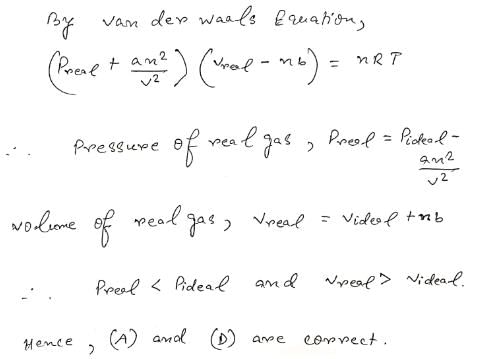 By van der waals Equation,
(Preal + an²/v²) (Vreal - nb) = nRT
∴ Pressure of real gas, Preal = Pideal - an²/v²
volume of real gas, Vreal = Videal + nb
∴ Preal < Pideal and Vreal > Videal.
Hence, (A) and (D) are correct.